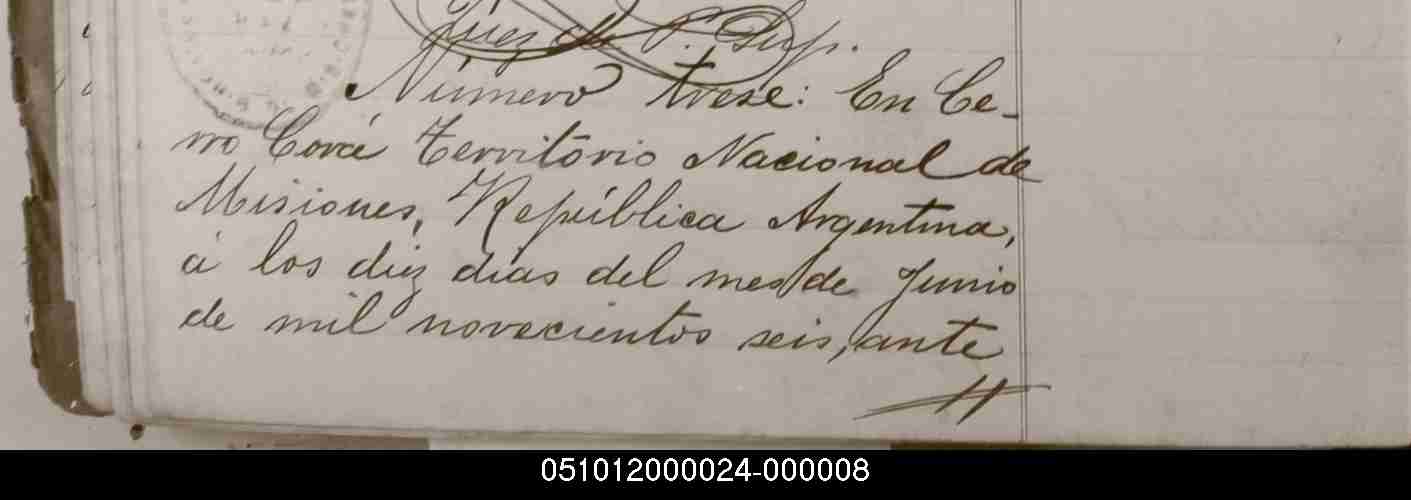 Juez de P. Sup.
Número trese: En Ce-
rro Corá Territorio Nacional de
Misiones, República Argentina,
á los diez dias del mes de Junio
de mil novecientos seis, ante
051012000024-000008